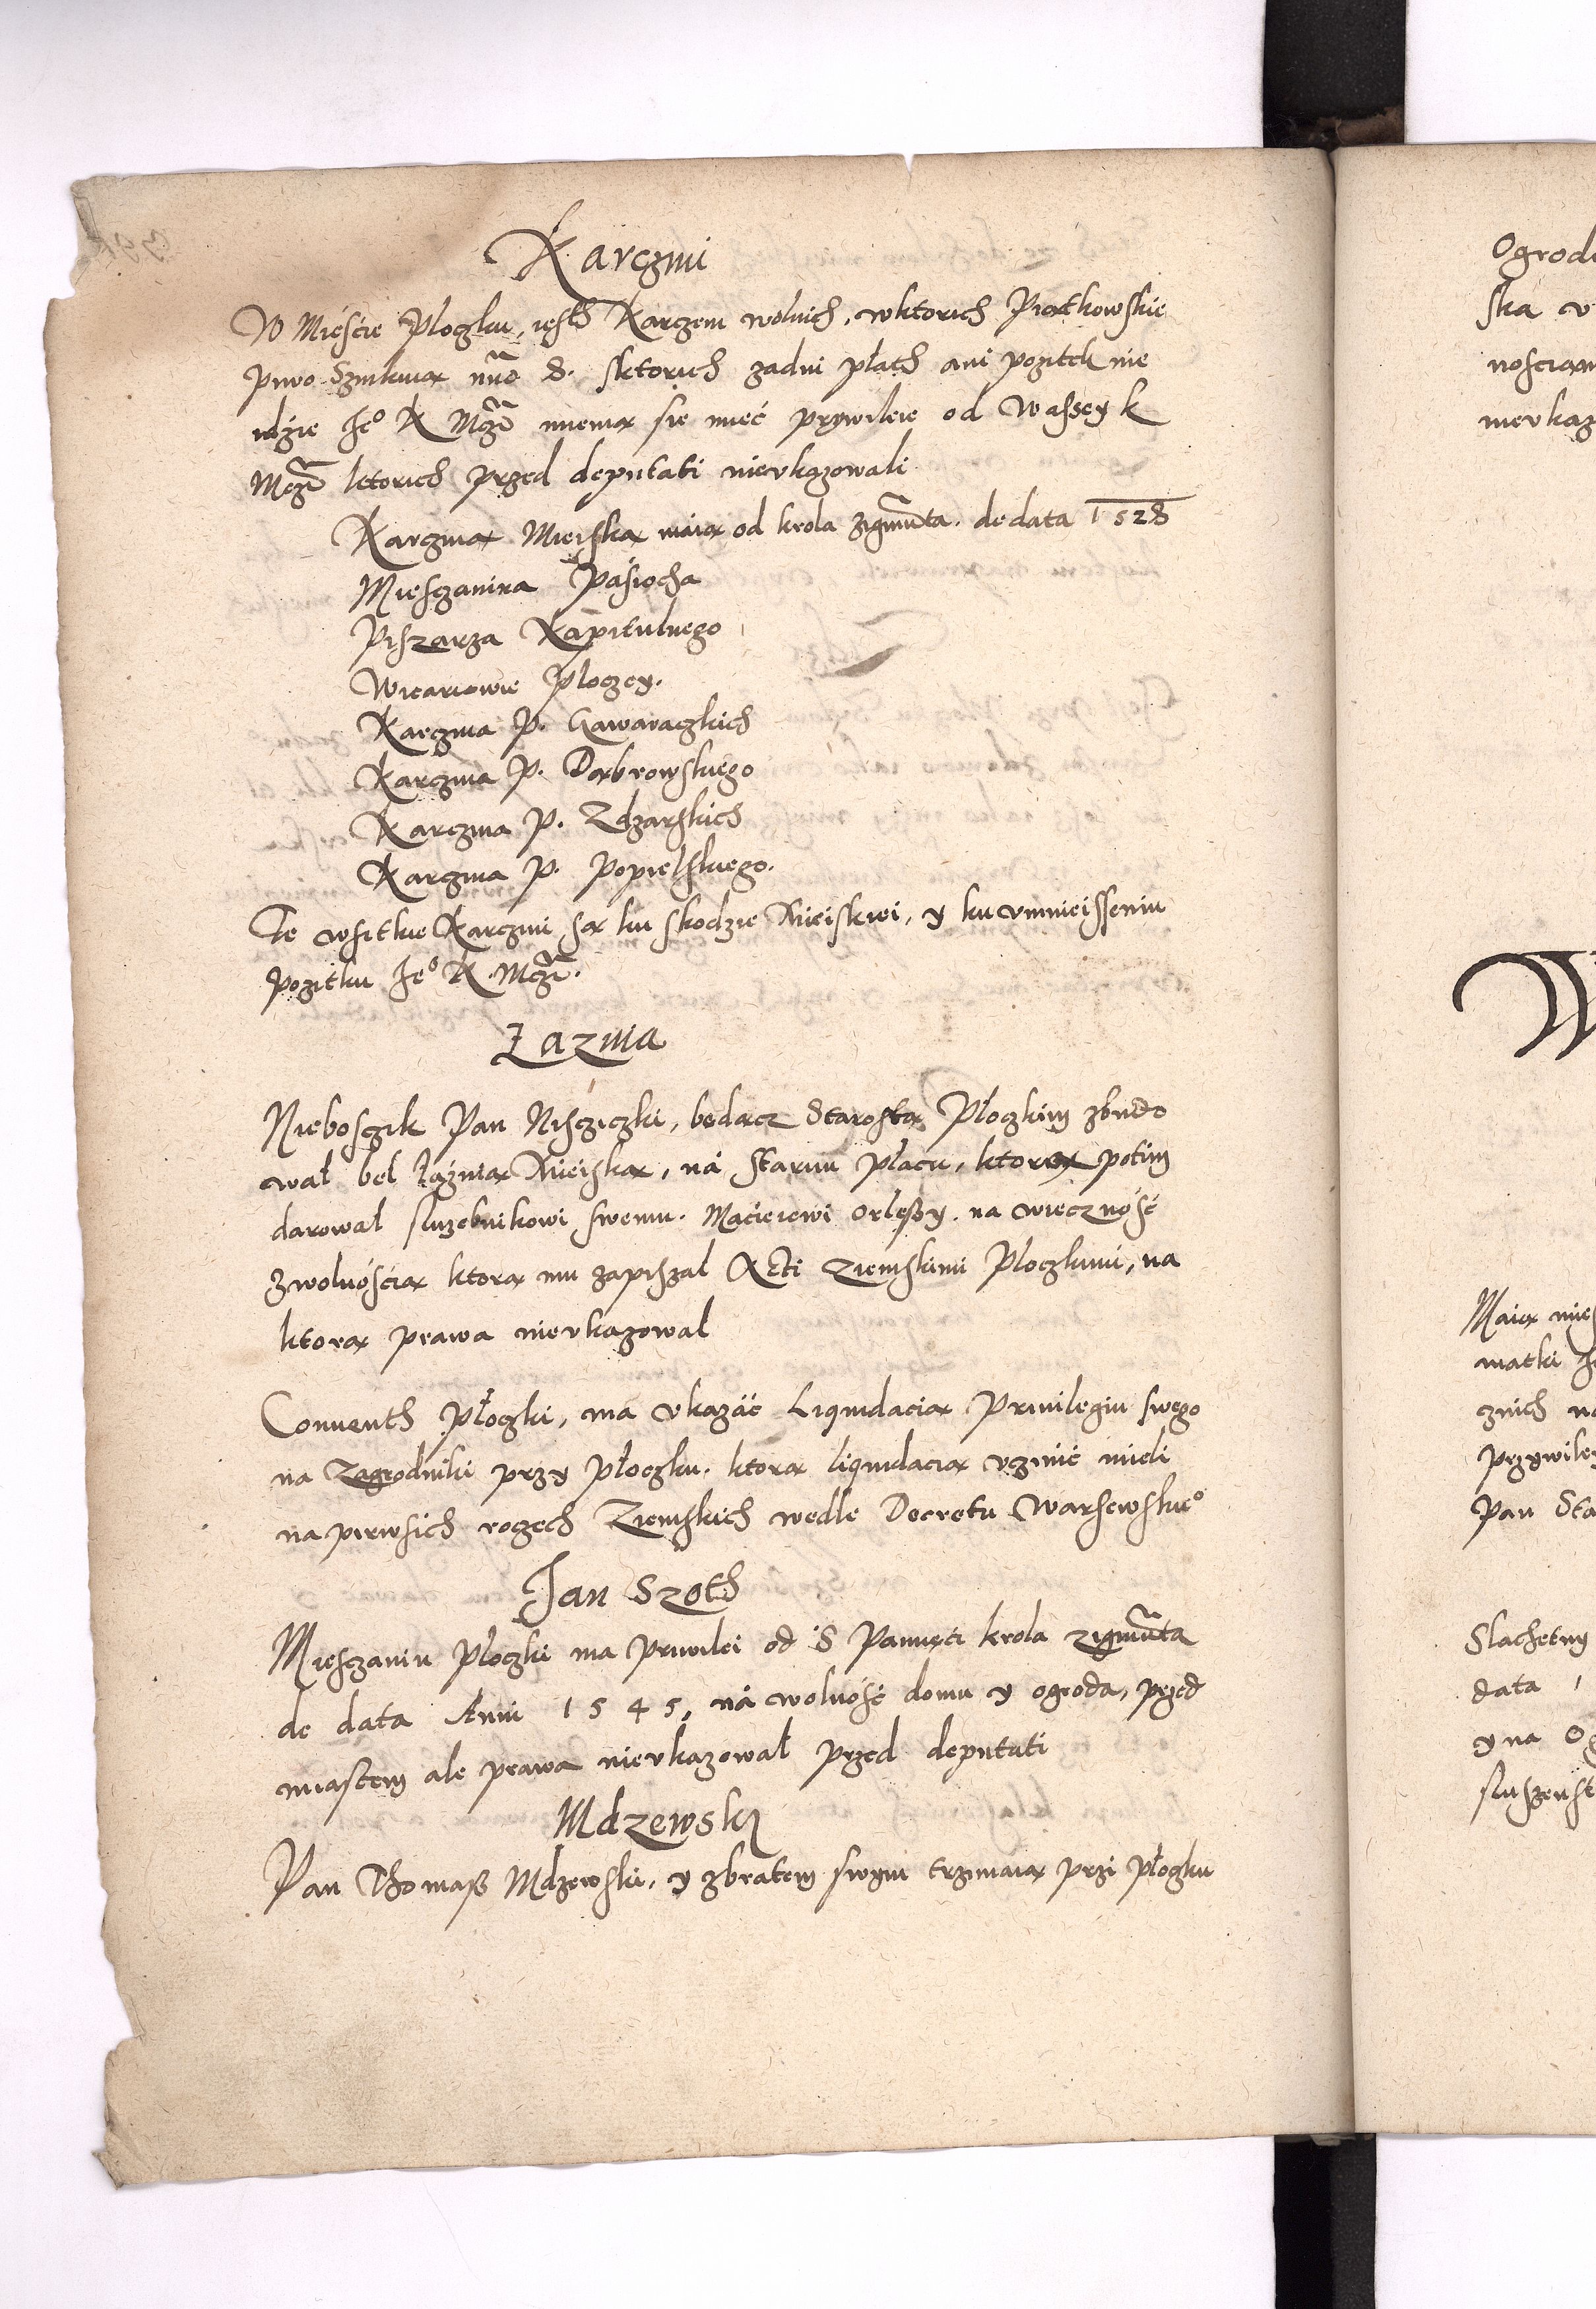 Karczmi
W Mieście Ploczku, iesth Karczem wolnich, wktorich Piątkowskie
piwo Szinkuią nũo 8. sktorich zadni płath ani pozitek nie
idzie Je° K Mczi mienią się mieć prziwileie od Wassey K
Mczi ktorich przed deputati nieukazowali
Karczmą Mieiską maią od krola Zigmũta. de data 1528
Miesczanina Pásiocha
Piszarza Kápitulnego
Wicariowie Ploczcy.
Karczma P. Gawaraczkich
Karczma P. Dąbrowskiego
Karczma P. Zdzarskich
Karczma P. Popielskiego.
Te wsitkie Karczmi są ku skodzie Mieiskiei, y ku umnieisseniu
pozitku Je° K. Mczi.
Łaznia
Nieboszczik Pan Niscziczki, bedącz Starostą Płoczkim zbudo
wał bel łáznią Mieiską, ná starim płacu, ktorą potim
darowal sluzebnikowi swemu. Macieiewi Orlęsy. na wieczność
zwolnością ktorą mu zapiszal Acti Ziemskimi Ploczkimi, na
ktorą prawa nieukazowal
Conventh Płoczki, ma ukazáć Liquidacią Priuilegiu swego
na Zagrodniki przy płoczku. ktorą liquidacią uczinić mieli
na pirwsich roczech Ziemskich wedle Decretu Warsewskie°
Jan Szoth
Miesczanin Ploczki ma priwilei od S Pamięci krola Zigmũta
de data Anni 1545, ná wolność domu y ogroda, przed
miastem ale prawa nieukazował przed deputati
Mdzewski
Pan Thomasz Mdzewski, y zbratem swym trzimaią przi płoczku
Ogrod
ska
mattki
Pan Sta
Slachetny
data 1
y na Og